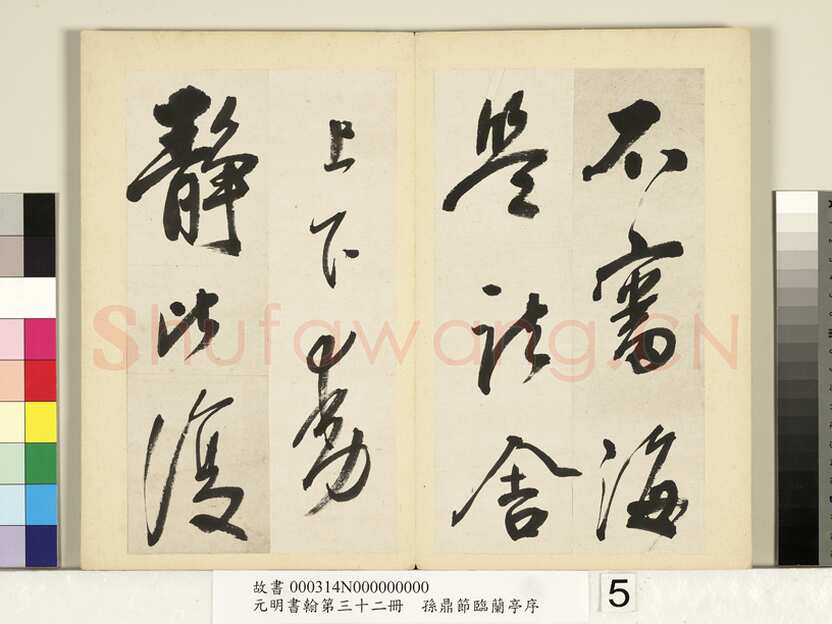 不審海
鹽諸舍
上下動
靜比復
Shufawang.CN
故書 000314N000000000
元明書翰第三十二冊 孫鼎節臨蘭亭序
5